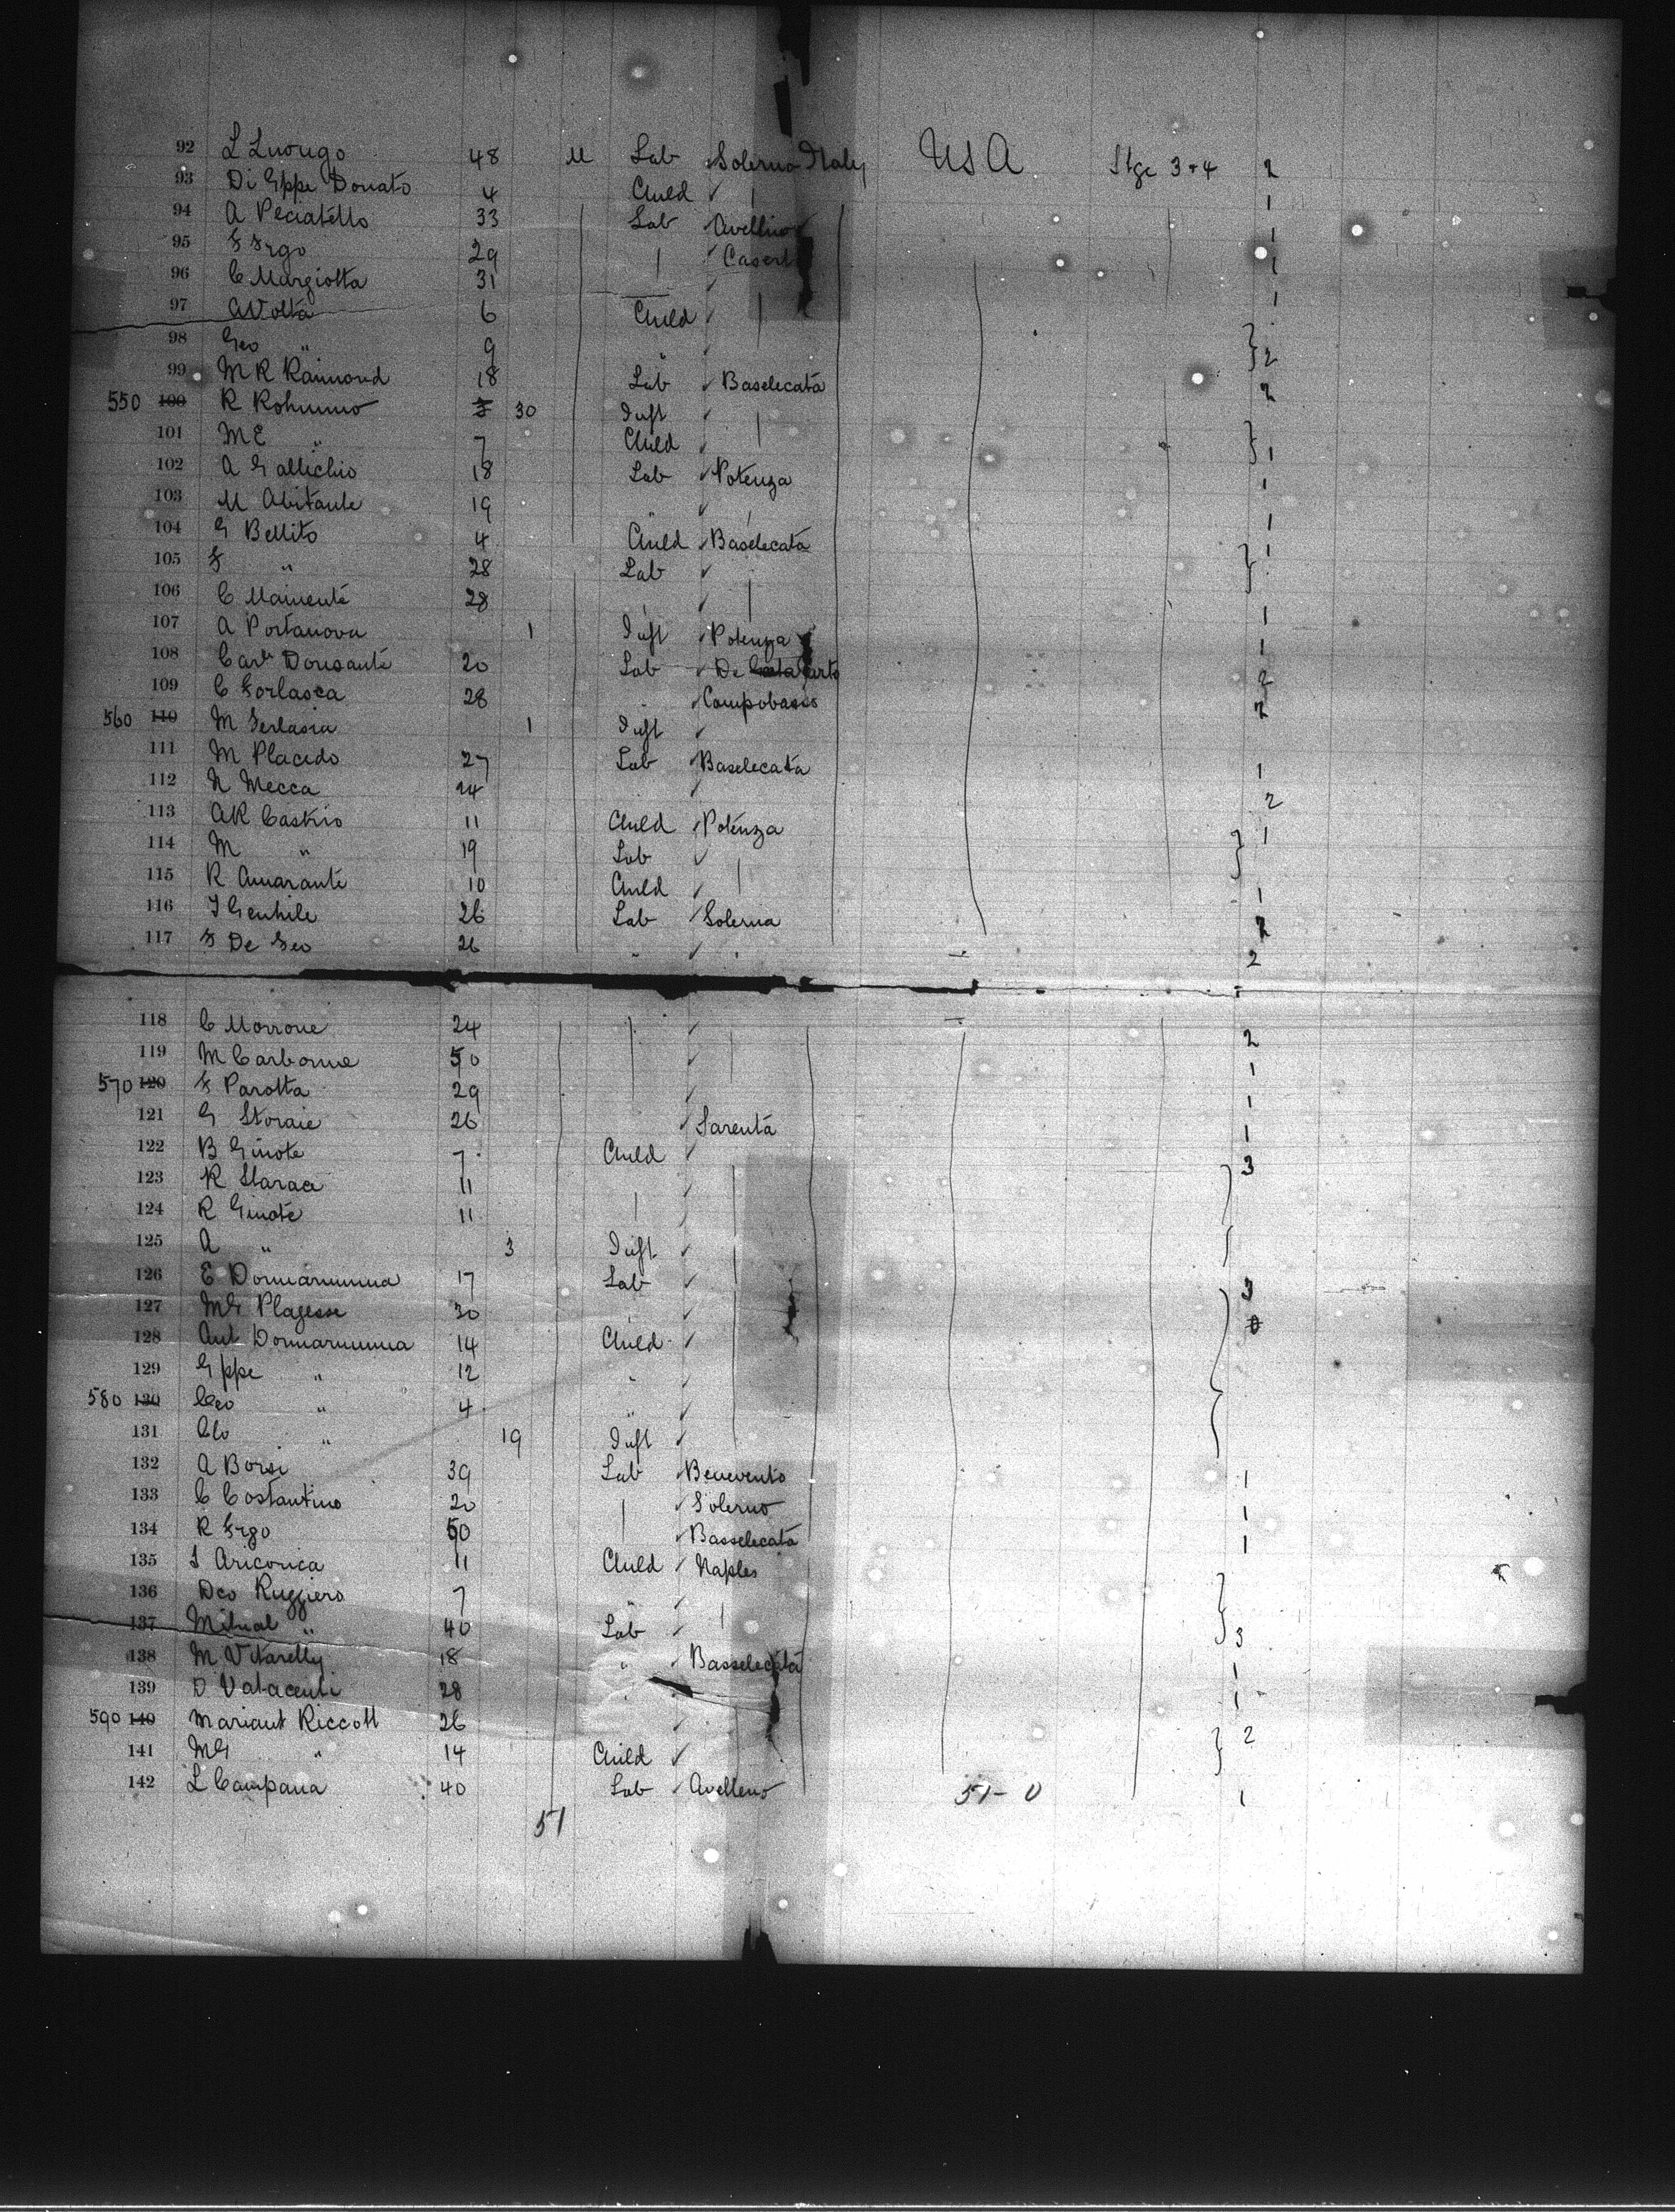 92 L Luongo 48 M Lab ✓ Solerno Italy USA Stge 3+4 2
93 Di Gppe Donato 4 Child ✓ 1
94 A Peciatello 33 Lab Avellino 1
95 F Frgo 29 ✓ Casert 1
96 C Margiotta 31 ✓ 1
97 A Volta 6 Child ✓
98 Geo " 9 " ✓ } 2
99 M R Raimond 18 Lab ✓ Baselecata 2
550 100 R Rohunno 30 Inft ✓
101 M E " 7 Child ✓ } 1
102 A Gallichio 18 Lab ✓ Potenza 1
103 M Abitante 19 " ✓ 1
104 G Bellito 4 Child ✓ Baselecata 1
105 F " 28 Lab ✓ }
106 C Mainente 28 ✓ 1
107 A Portanova 1 Inft ✓ Potenza 1
108 Carl Donsante 20 Lab ✓ De 2
109 C Gorlasca 28 " ✓ Campobasso 2
560 110 M Serlasia 1 Inft ✓
111 M Placido 27 Lab ✓ Baselecata 1
112 N Mecca 24 ✓ 2
113 A R Castrio 11 Child ✓ Potenza 1
114 M " 19 Lab ✓ }
115 R Amarante 10 Child ✓ 1
116 I Genhile 26 Lab ✓ Solerna 2
117 F De Geo 26 " ✓ " 2
118 C Morrone 24 ✓ 2
119 M Carbone 50 ✓ 1
570 120 F Parotta 29 ✓ 1
121 G Storaie 26 ✓ Sarenta 1
122 B Ginote 7 Child ✓ 3
123 R Starace 11 ✓
124 R Ginote 11 ✓
125 A " 3 Inft ✓
126 E Donnarumma 17 Lab ✓ 3
127 MG Plagesse 30 " ✓
128 Ant Donnarumma 14 Child ✓
129 Gppe " 12 " ✓
580 130 Ceo " 4 " ✓
131 Clo " 19 Inft ✓
132 A Borsi 39 Lab ✓ Benevento 1
133 C Costantino 20 ✓ Solerno 1
134 R Frgo 50 ✓ Basselecata 1
135 I Aricorica 11 Child ✓ Naples
136 Dco Ruggiero 7 " ✓
137 " 40 Lab ✓ } 3
138 M Vitarelly 18 " ✓ Basselecata 1
139 D Valacenti 28 " 1
590 140 Mariant Riccott 26 ✓ 2
141 MG " 14 Child ✓ }
142 L Campana 40 Lab ✓ Avelleno 51-0 1
51